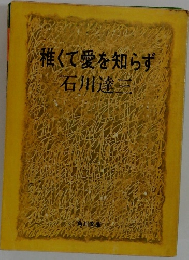 稚くて愛を知らず
石川達三